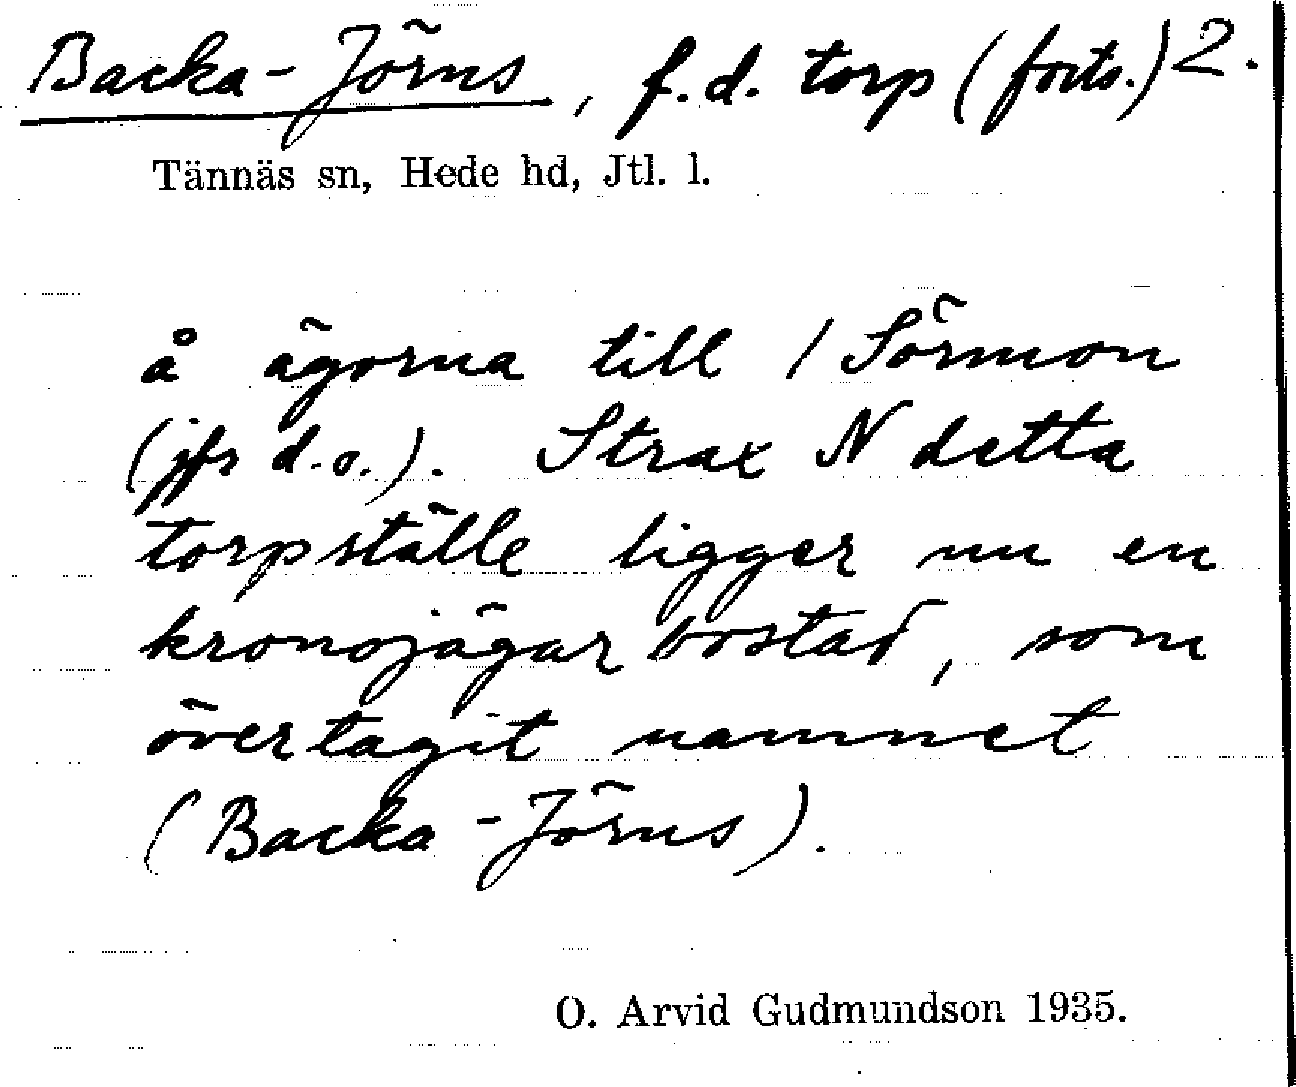 Backa-Jörns, f.d. torp (forts.) 2.
Tännäs sn, Hede hd, Jtl. l.
å ägorna till / Sörmon
(jfr d.o.). Strax N detta
torpställe ligger nu en
kronojägarbostad, som
övertagit namnet
(Backa-Jörns).
O. Arvid Gudmundson 1935.